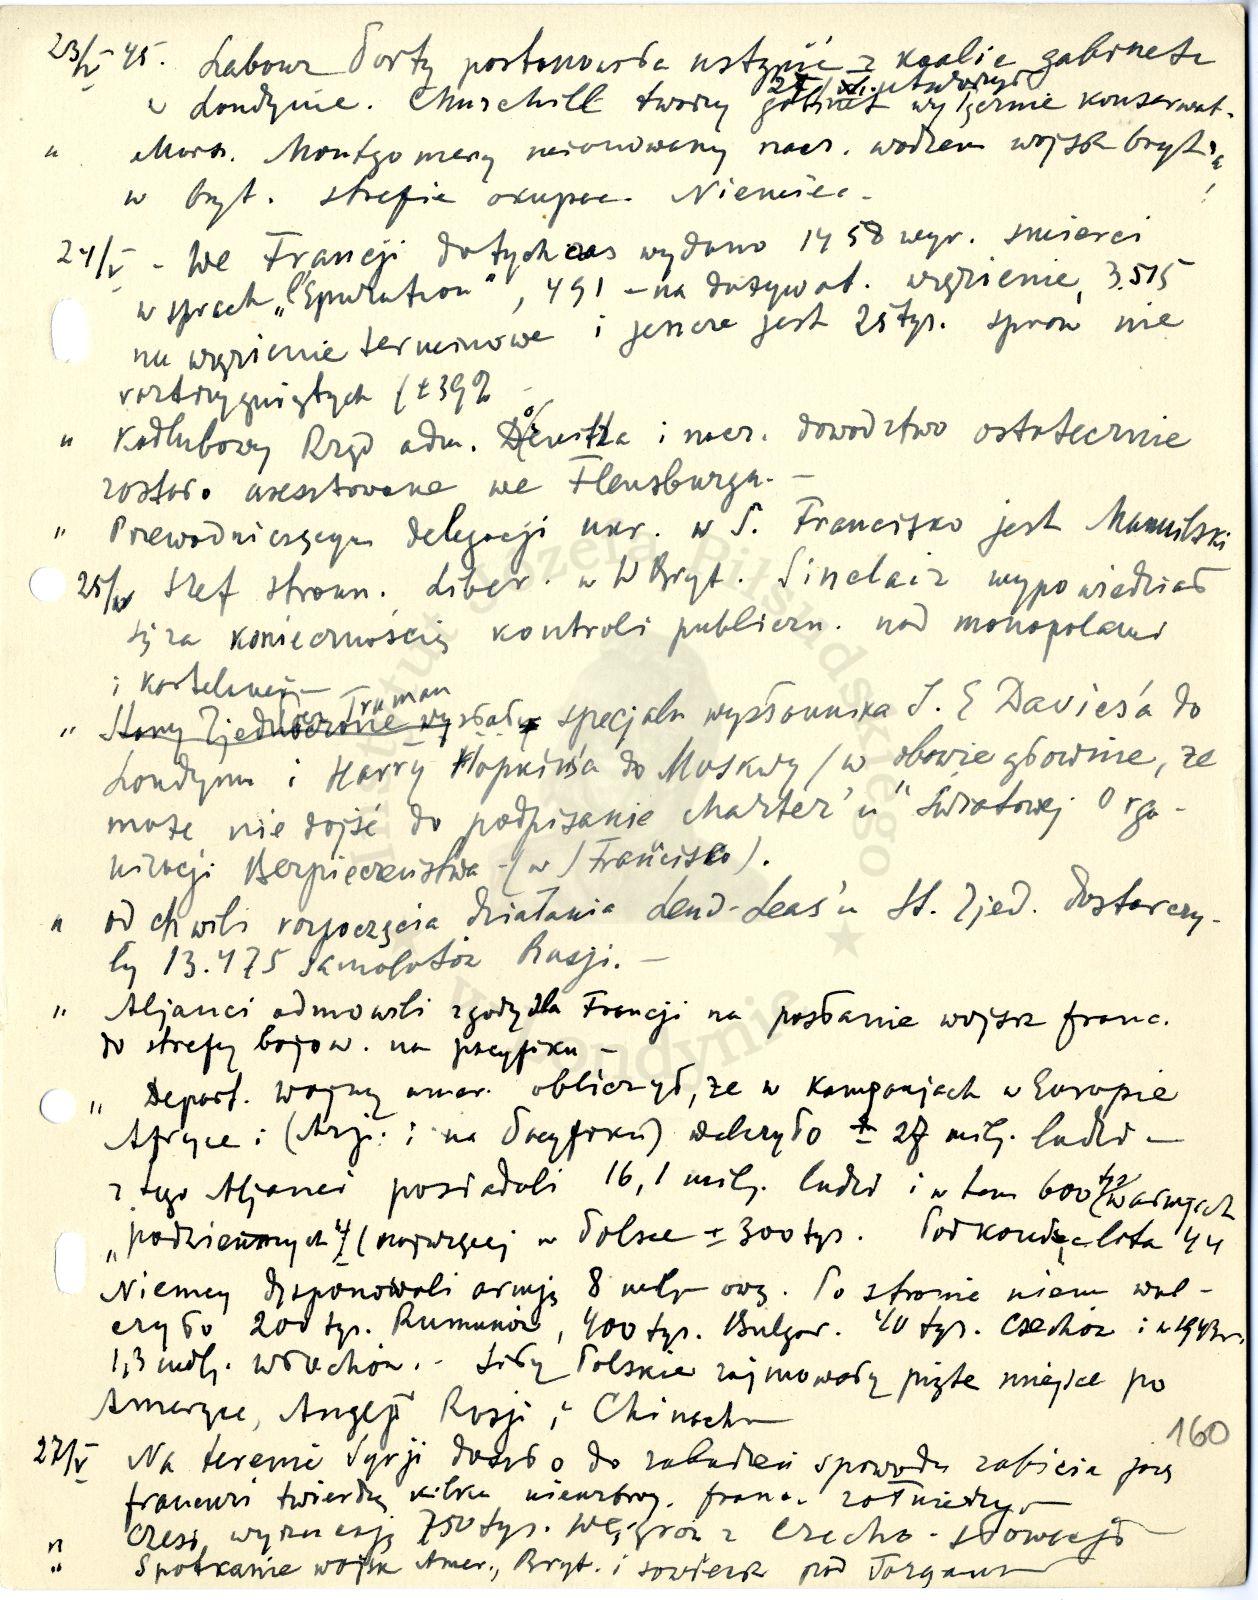 23/V 45. Labour Party postanowiła ustąpić z koalic. gabinetu
w Londynie. Churchill tworzy gabinet wyłącznie konserwat.
" Marsz. Montgomery mianowany nacz. wodzem wojsk bryt.
w bryt. strefie okupac. Niemiec.
24/V - We Francji dotychczas wydano 1458 wyr. śmierci
w sprach „l'Epuration", 491 - na dożywot. więzienie, 3.515
na więzienie terminowe i jeszcze jest 25 tyś. spraw nie
roztrzygniętych (± 39%
" Kadłubowy Rząd adm. Dönitza i nacz. dowództwo ostatecznie
zostało aresztowane we Flensburgu. -
" Przewodniczącym delegacji ukr. w S. Francisko jest Manuilski
25/V Szef stronn. Liber. w W Bryt. Sinclair wypowiedział
się za koniecznością kontroli publiczn. nad monopolami
i kartelami -
Prez Truman
" Stany Zjednoczone wysłał specjaln wysłannika J. E Davies'a do
Londynu i Harry Hopkins'a do Moskwy (w obawie głównie, że
może nie dojść do podpisania Charter'u" Światowej Orga-
nizacji Bezpieczeństwa - (w S Francisko).
" od chwili rozpoczęcia działania Lend-Leas'u St. Zjed. dostarczy-
ły 13.475 samolotów Rosji. -
" Aljanci odmówili zgody dla Francji na posłanie wojsk franc.
do strefy bojow. na pacyfiku -
" Depart. Wojny amer. obliczył, że w kampanjach w Europie
Afryce i (Azji i na Pacyfiku) walczyło ± 27 milj. ludzi -
z tego Aljanci posiadali 16,1 milj. ludzi i w tem 600 tys (w armjach
„podziemnych") (najwięcej w Polsce ± 300 tys. Pod koniec lata 44
Niemcy dysponowali armją 8 milj. Po stronie niem wal-
czyło 200 tys. Rumunów, 400 tys. Bułgar. 40 tys. Czechów i w 1943 r.
1,3 milj. Włochów. - Siły Polskie zajmowały piąte miejsce po
Ameryce, Anglji Rosji i Chinach
160
27/V Na terenie Syrji doszło do zaburzeń spowodu zabicia
francuzi twierdzą kilku nieuzbroj. franc. żołnierzy -
" Czesi wyrzucają 750 tys. Węgrów z Czecho-słowacji -
" Spotkanie wojsk Amer., Bryt. i sowieck pod Torgau
Instytut Józefa Piłsudskiego
w Londynie